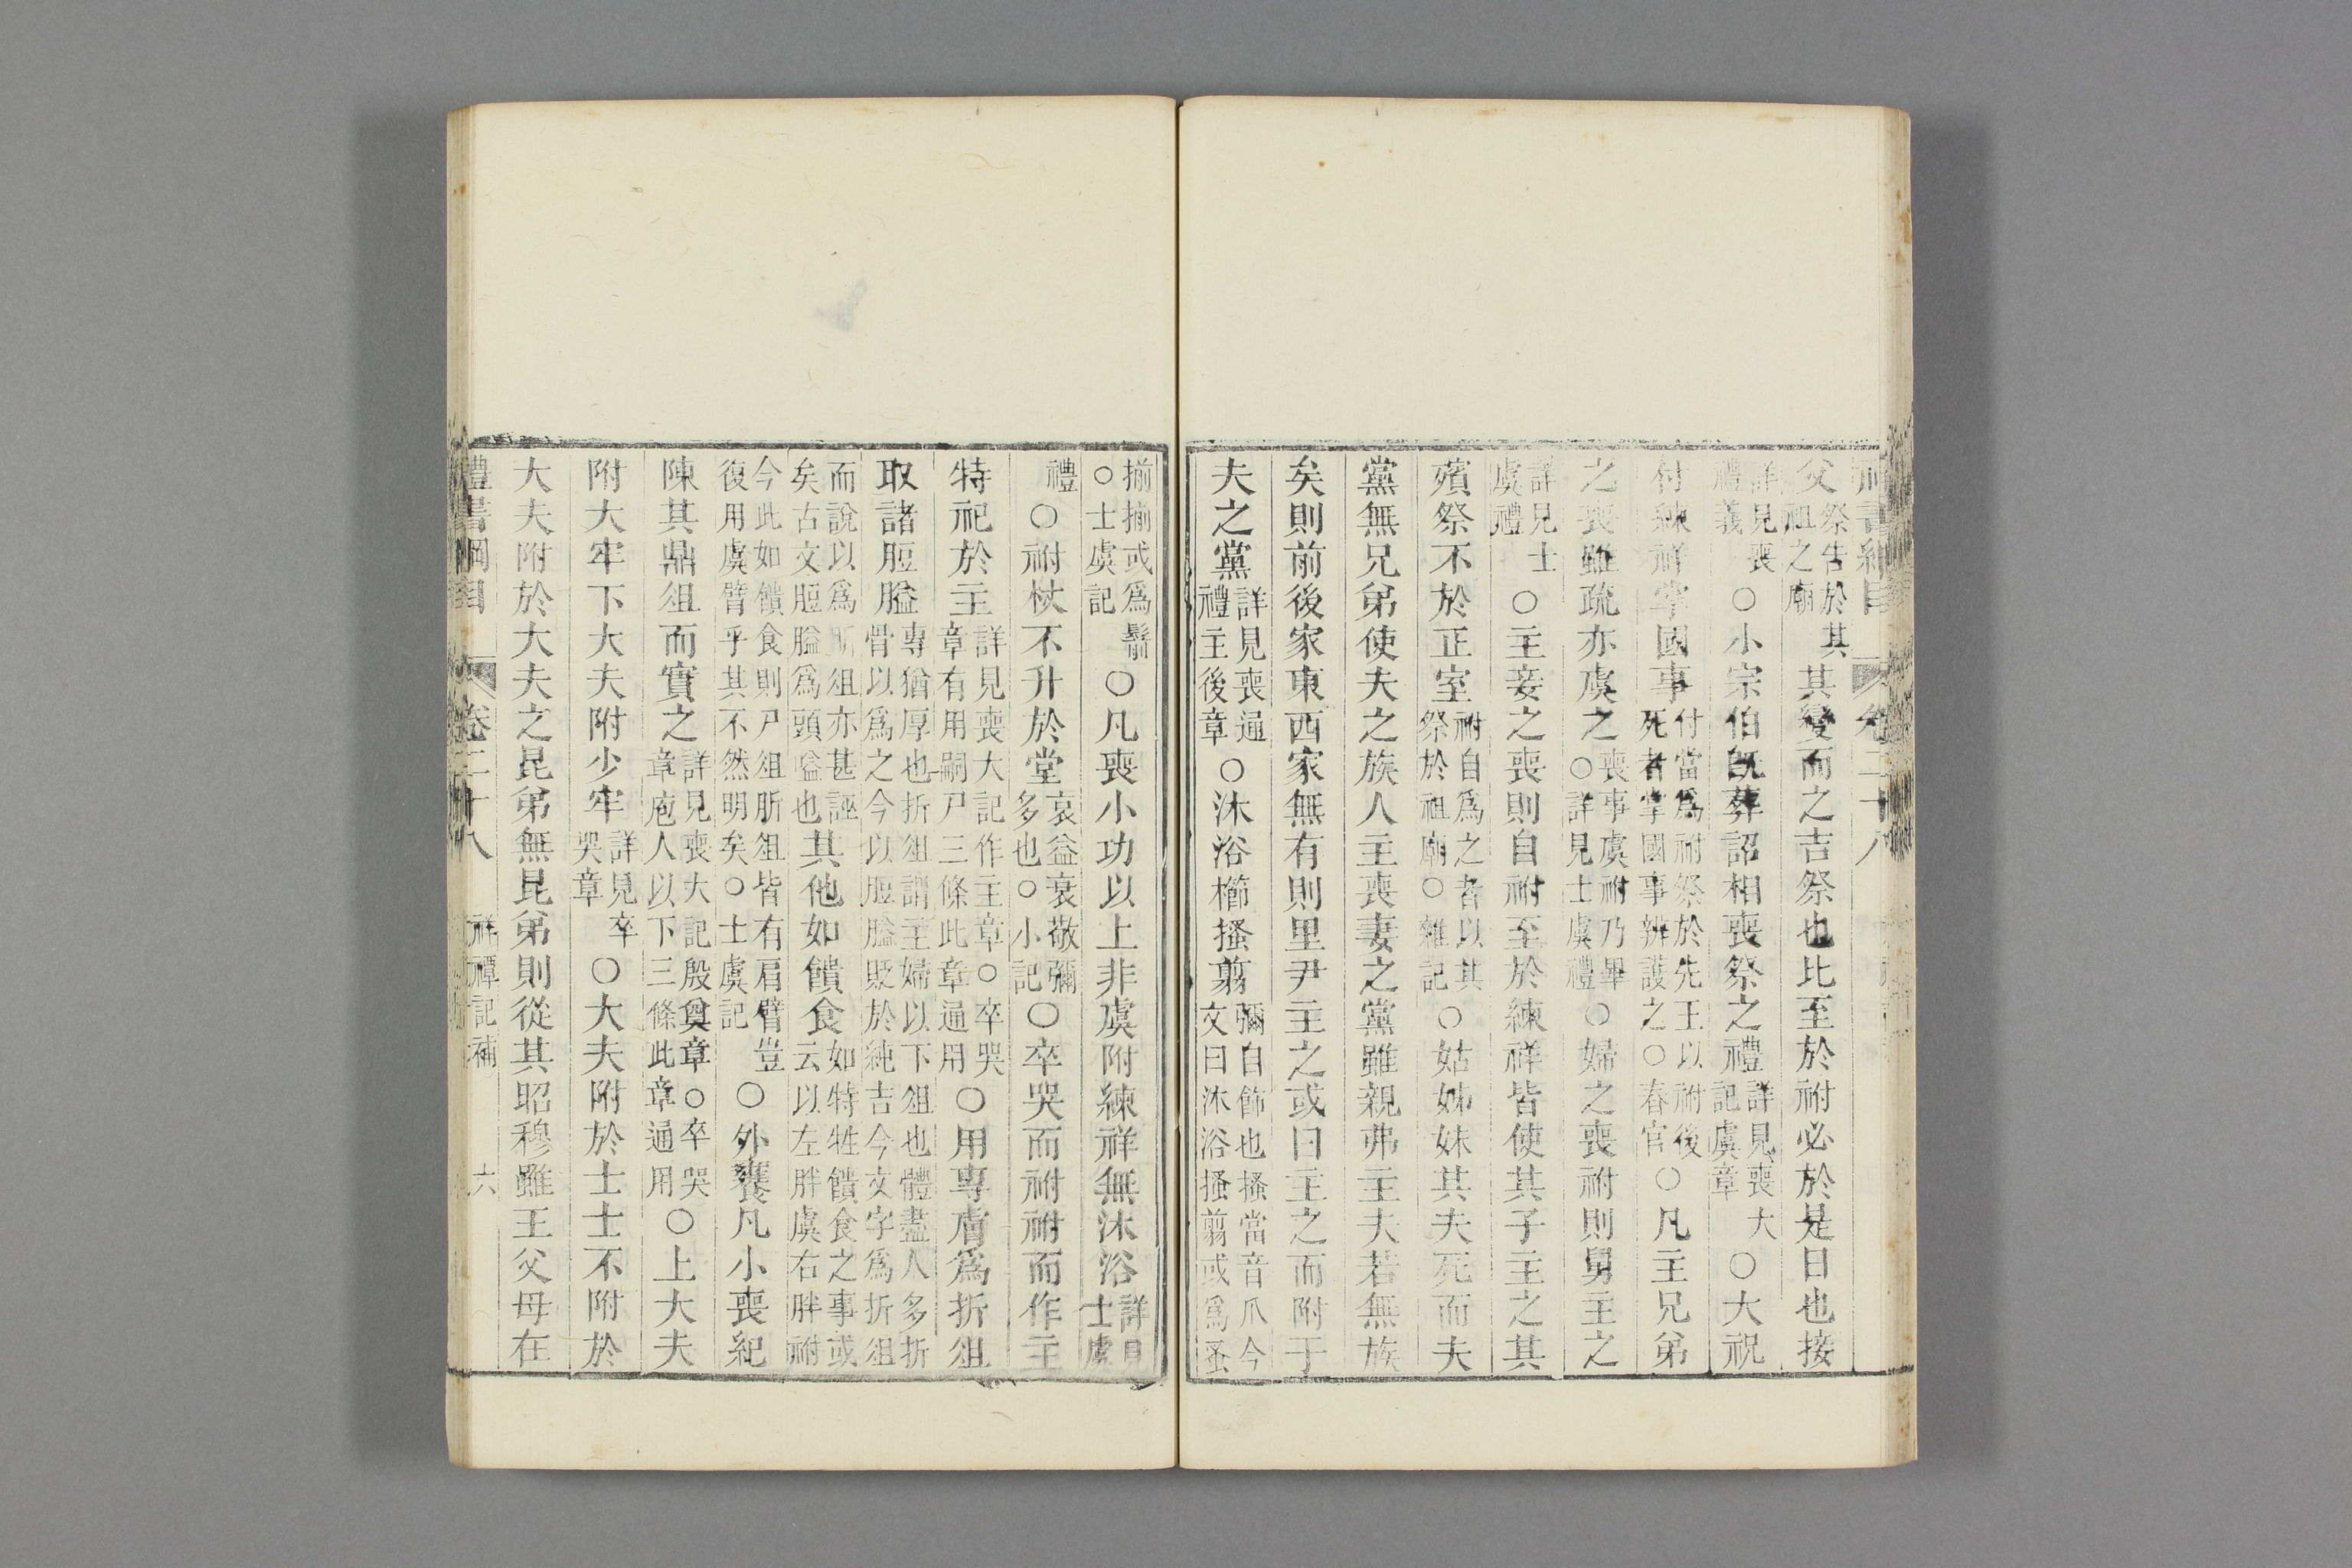 禮書綱目 卷二十八
父祭告於其祖之廟其變而之吉祭也比至於祔必於是日也接
詳見喪禮義○小宗伯旣葬詔相喪祭之禮詳見喪大記虞章○大祝
付練祥掌國事付當爲祔祭於先王以祔後死者掌國事辨護之○春官○凡主兄弟
之喪雖疏亦虞之喪事虞祔乃畢○詳見士虞禮○婦之喪祔則舅主之
詳見士虞禮○主妾之喪則自祔至於練祥皆使其子主之其
殯祭不於正室祔自爲之者以其祭於祖廟○雜記○姑姊妹其夫死而夫
黨無兄弟使夫之族人主喪妻之黨雖親弗主夫若無族
矣則前後家東西家無有則里尹主之或曰主之而附于
夫之黨詳見喪通禮主後章○沐浴櫛搔翦彌自飾也搔當音爪今文曰沐浴搔翦或爲蚤
揃揃或爲鬋○士虞記○凡喪小功以上非虞附練祥無沐浴詳見士虞
禮○祔杖不升於堂哀益衰敬彌多也○小記○卒哭而祔祔而作主
特祀於主詳見喪大記作主章○卒哭章有用嗣尸三條此章通用○用專膚爲折俎
取諸脰膉專猶厚也折俎謂主婦以下俎也體盡人多折骨以爲之今以脰膉貶於純吉今文字爲折俎
而說以爲肵俎亦甚誣矣古文脰膉爲頭嗌也其他如饋食如特牲饋食之事或云以左胖虞右胖祔
今此如饋食則尸俎肵俎皆有肩臂豈復用虞臂乎其不然明矣○士虞記○外饔凡小喪紀
陳其鼎俎而實之詳見喪大記殷奠章○卒哭章庖人以下三條此章通用○上大夫
附大牢下大夫附少牢詳見卒哭章○大夫附於士士不附於
大夫附於大夫之昆弟無昆弟則從其昭穆雖王父母在
禮書綱目 卷二十八 祥禫記補 六